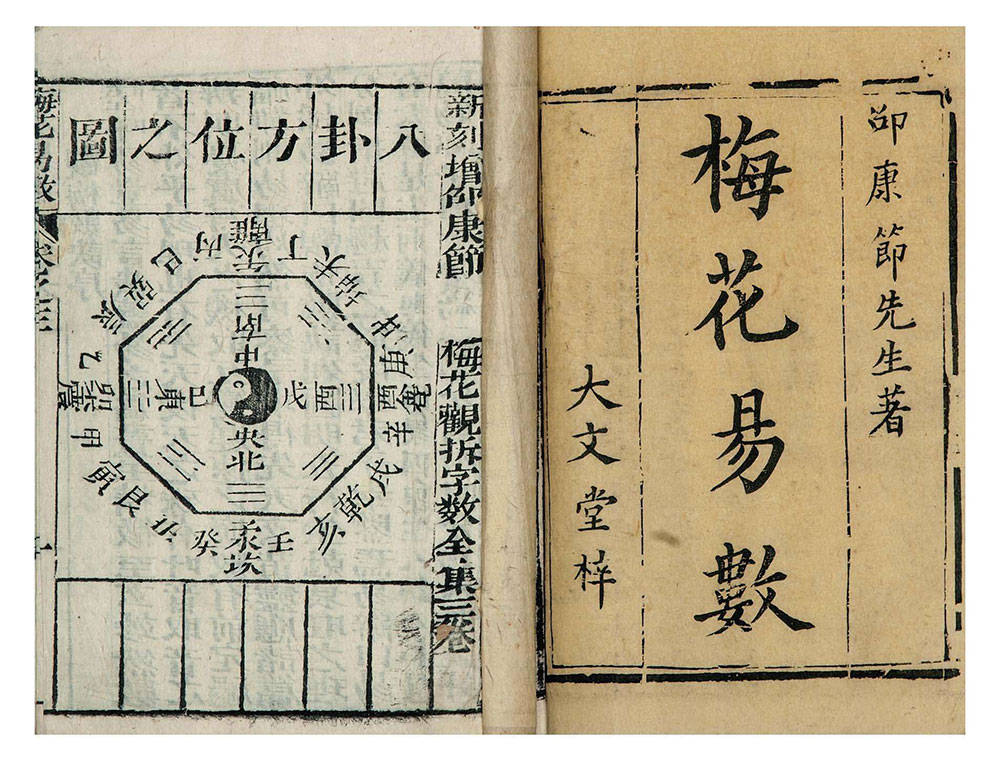 邵康節先生著
梅花易數
大文堂梓
新刻增邵康節 梅花觀拆字數全集三卷
八卦方位之圖
丙午離丁
未坤申
庚酉兌辛
戌乾亥
壬子坎癸
丑艮寅
甲卯震乙
辰巽巳
南中
東巳
戊酉
央北
梅花易數
卷之三